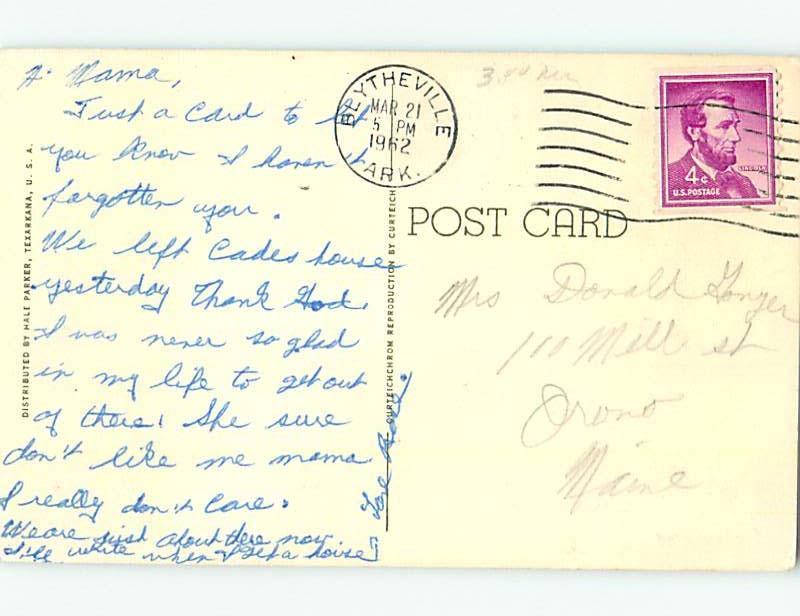 Hi Mama,
Just a card to let
you know I haven't
forgotten you.
We left Cades house
yesterday Thank God.
I was never so glad
in my life to get out
of there! She sure
don't like me mama
I really don't care.
We are just about there now
I'll write when I get a house
Love
DISTRIBUTED BY HALE PARKER, TEXARKANA, U. S. A.
CURTEICHCHROM REPRODUCTION BY CURTEICH
BLYTHEVILLE
MAR 21
5 PM
1962
ARK.
4¢
LINCOLN
U.S. POSTAGE
POST CARD
Mrs Donald
110 Mill st
Orono
Maine